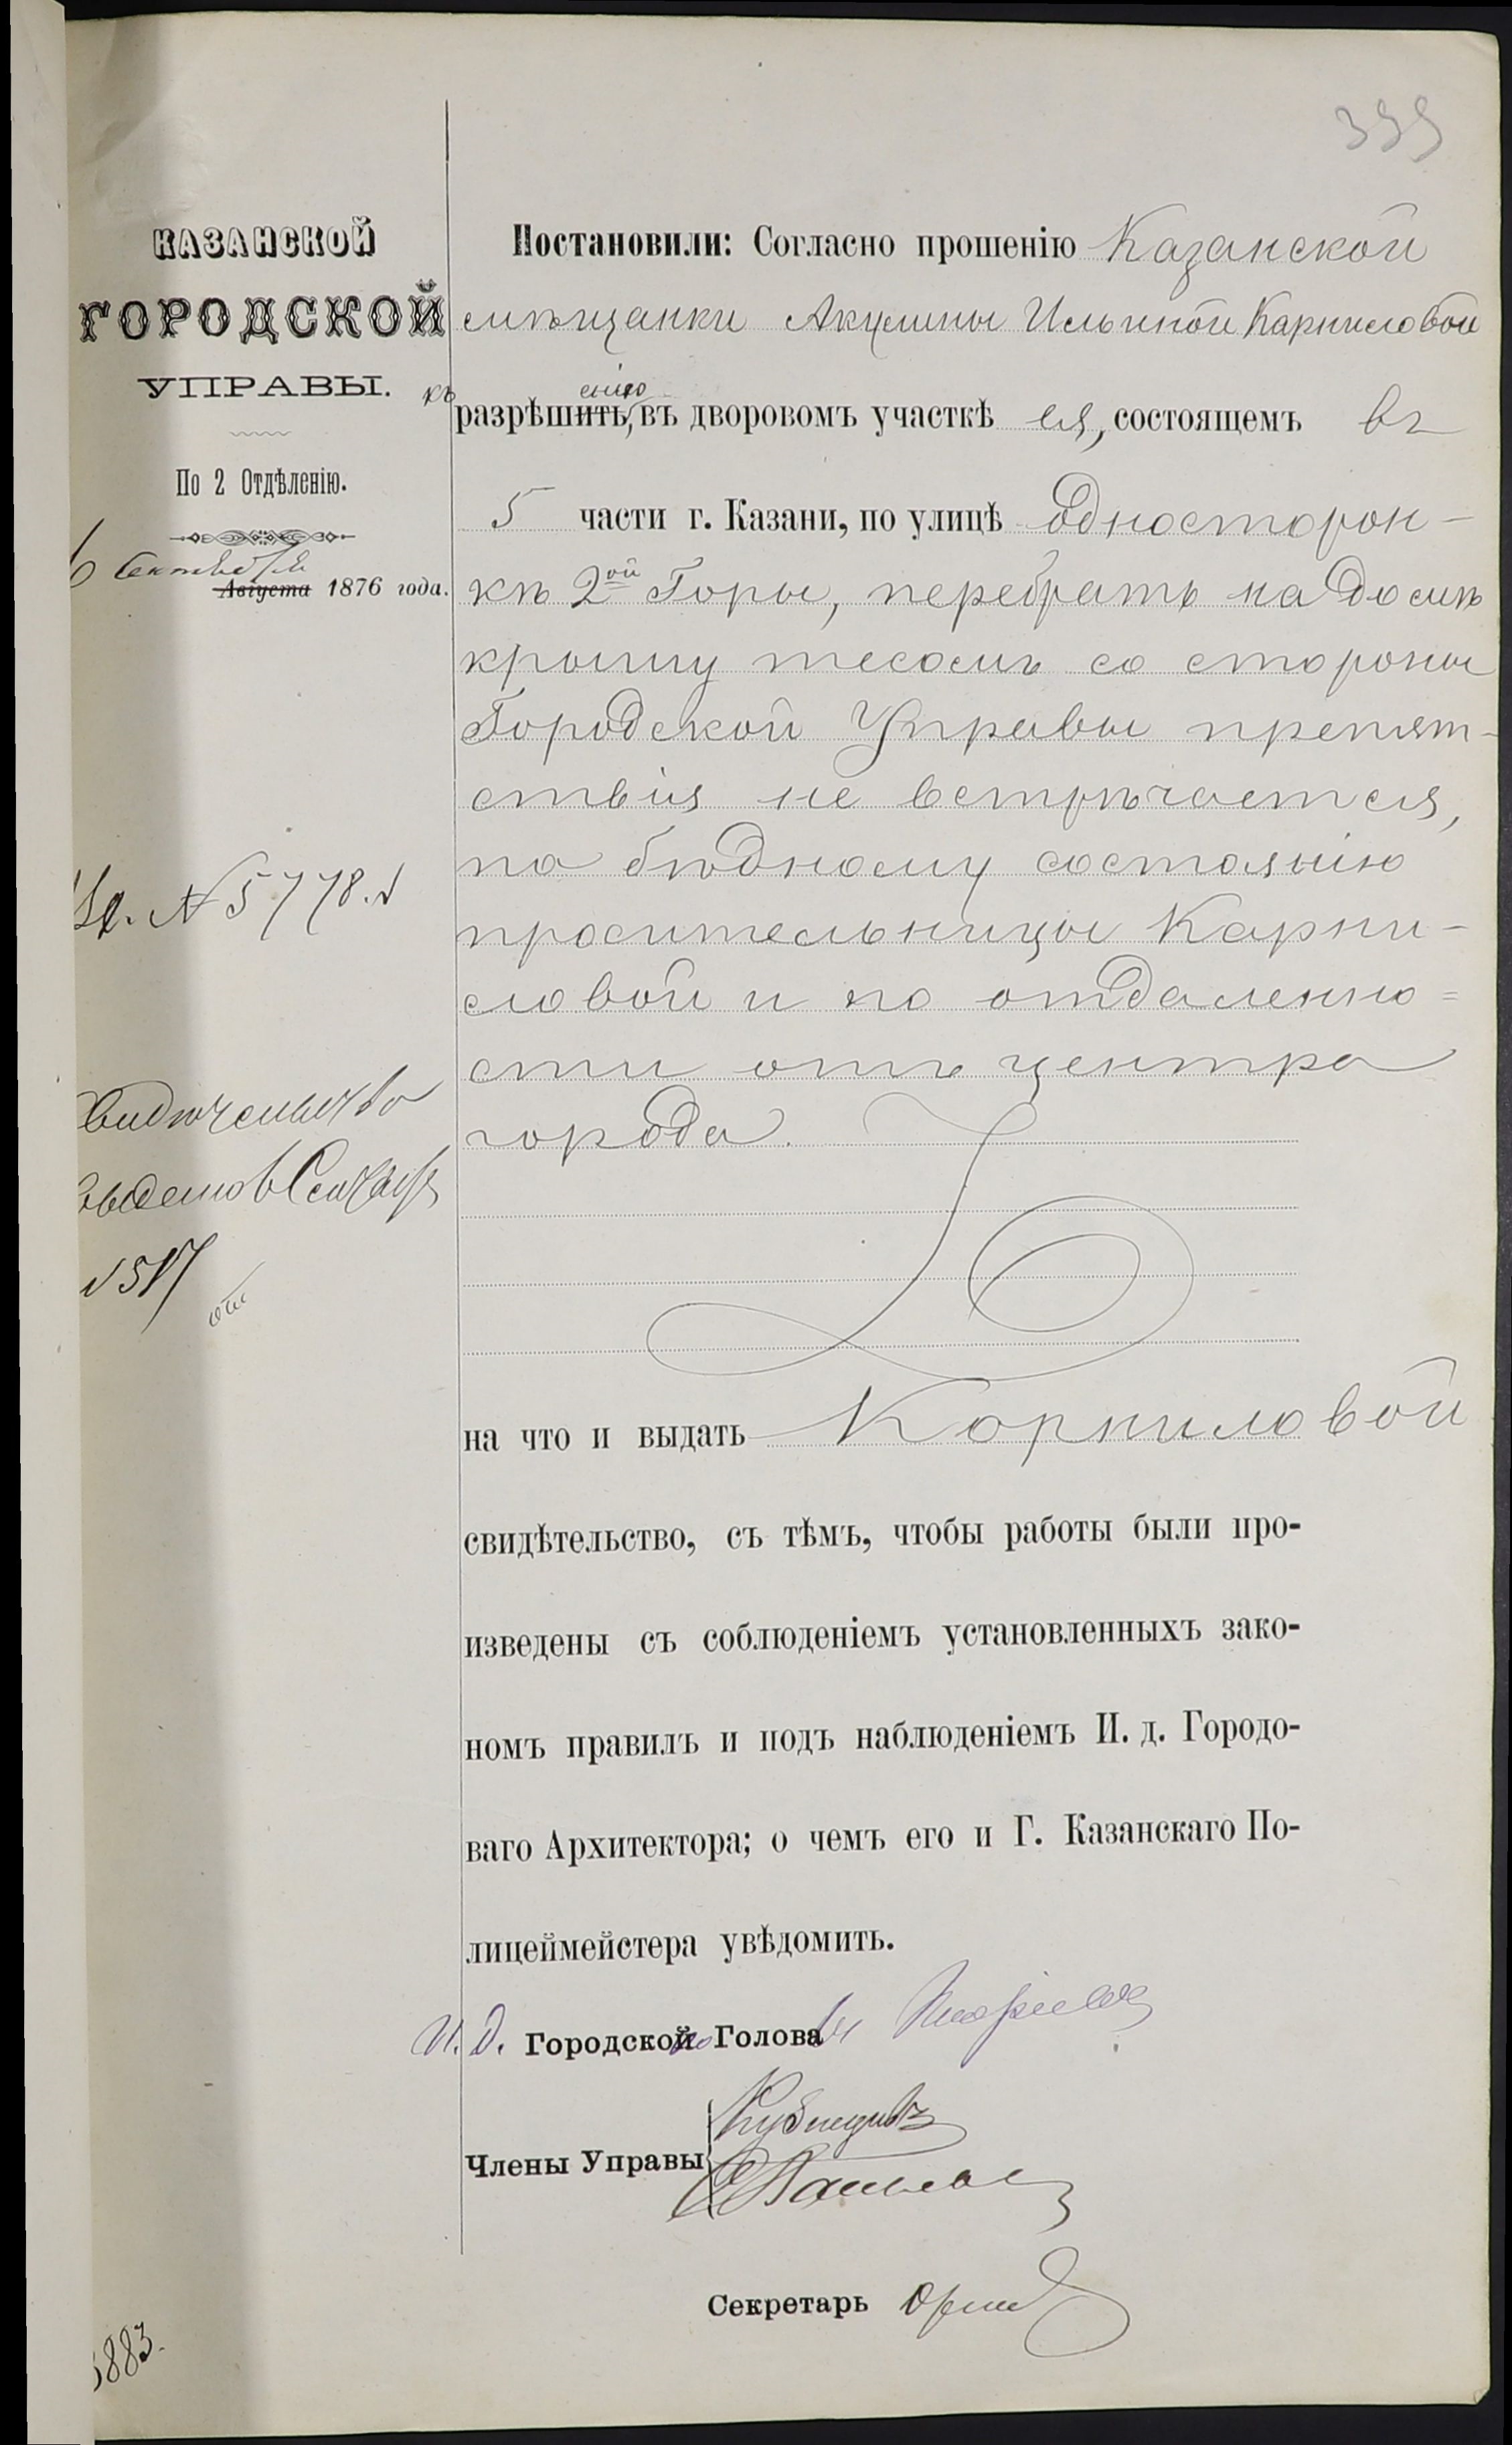 КАЗАНСКОЙ
ГОРОДСКОЙ
УПРАВЫ.
По 2 Отдѣленію.
6 Сентября
Августа 1876 года.
N 5778.
Свидѣтельство
выдано в Сентябр
N 517
5883.
399
Постановили: Согласно прошенію Казанской
мѣщанки Акулины Ильиной Карниловой
къ разрѣшенію, въ дворовомъ участкѣ ея, состоящемъ въ
5 части г. Казани, по улицѣ Односторон-
кѣ 2ой Горы, перебрать на домѣ
крышу тесомъ со стороны
Городской Управы препят-
ствія не встрѣчается,
по бѣдному состоянію
просительницы Карни-
ловой и по отдаленно=
сти отъ центра
города.
на что и выдать Корниловой
свидѣтельство, съ тѣмъ, чтобы работы были про-
изведены съ соблюденіемъ установленныхъ зако-
номъ правилъ и подъ наблюденіемъ И. д. Городо-
ваго Архитектора; о чемъ его и Г. Казанскаго По-
лицеймейстера увѣдомить.
И. д. Городской Голова
Члены Управы
Секретарь